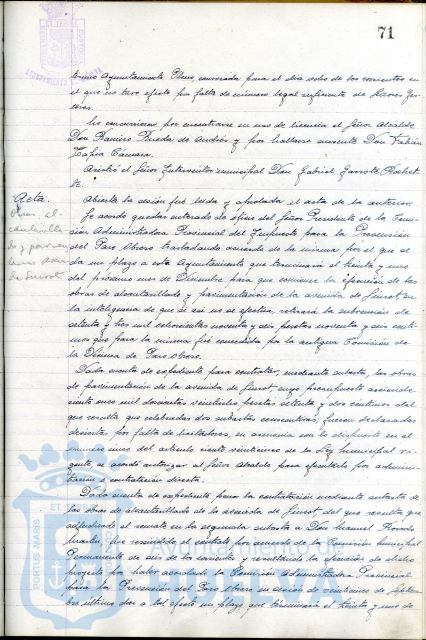 71
Ayuntamiento Pleno, convocada para el día ocho de los corrientes en
el que no tuvo efecto por falta de número legal suficiente de Señores Ges-
tores.
No concurrieron por encontrarse en uso de licencia el Señor Alcalde
Don Ramiro Rueda de Andrés y por hallarse ausente Don Fabián
Tapia Cámara.
Asistió el Señor Interventor municipal Don Gabriel Garrote
Acta.
Abierta la sesión fué leida y aprobada el acta de la anterior.
Se acordó quedar enterado de oficio del Señor Presidente de la Comi-
sión Administradora Provincial del Impuesto para la Prevención
del Paro Obrero trasladando acuerdo de la misma por el que se
da un plazo a este Ayuntamiento que terminará el treinta y uno
del próximo mes de Diciembre para que comience la ejecución de las
obras de alcantarillado y pavimentación de la avenida de en
la inteligencia de que si así no se efectúa, retirará la subvención de
setenta y tres mil seiscientas noventa y dos pesetas noventa y seis cénti-
mos que para la misma fué concedida por la antigua Comisión de
la Décima de Paro obrero.
Dada cuenta de expediente para contratar, mediante subasta, las obras
de pavimentación de la avenida de cuyo presupuesto asciende
ciento once mil doscientas veintiseis pesetas setenta y dos céntimos del
que resulta que celebradas dos subastas consecutivas, fueron declaradas
desiertas por falta de licitadores, en armonía con lo dispuesto en el
número once del artículo ciento veinticinco de la Ley municipal vi-
gente, se acordó autorizar al Señor Alcalde para efectuarlo por adminis-
tración o contratación directa.
Dada cuenta de expediente para la contratación mediante subasta de
las obras de alcantarillado de la avenida de del que resulta que
adjudicado el remate en la segunda subasta a Don Manuel
fué rescindido el contrato por acuerdo de la Comisión municipal
Permanente de seis de la y resultando la ejecución de dicho
proyecto por haber acordado la Comisión Administradora Provincial
para la Prevención del Paro obrero en sesión de veintinueve de Septiem-
bre último dar a tal efecto un plazo que terminará el treinta y uno de
PORTUS MAGNI
ET
Ayuntamiento de